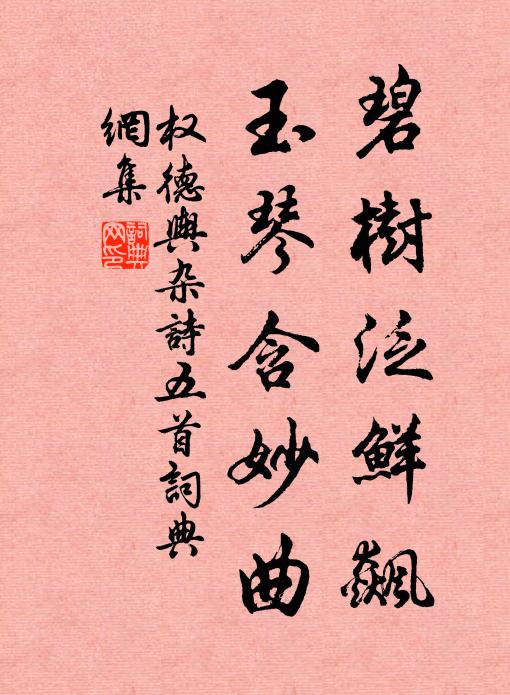 碧樹泛鮮飆
玉琴含妙曲
权德輿杂詩五首詞典
網集
詞典
网印